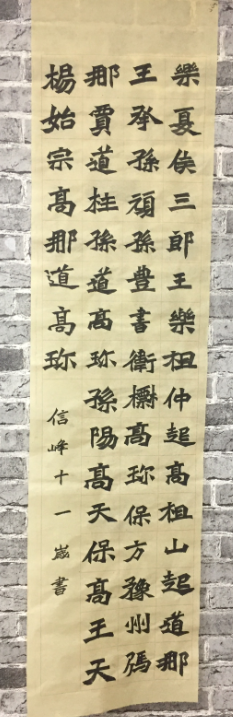 樂夏侯三郎王樂祖仲起高祖山起道那
王承孫頑孫豊書衛檦高珎保方豫州馮
那賈道桂孫道高珎孫陽高天保高王天
楊始宗高那道高珎
信峰十一歲書